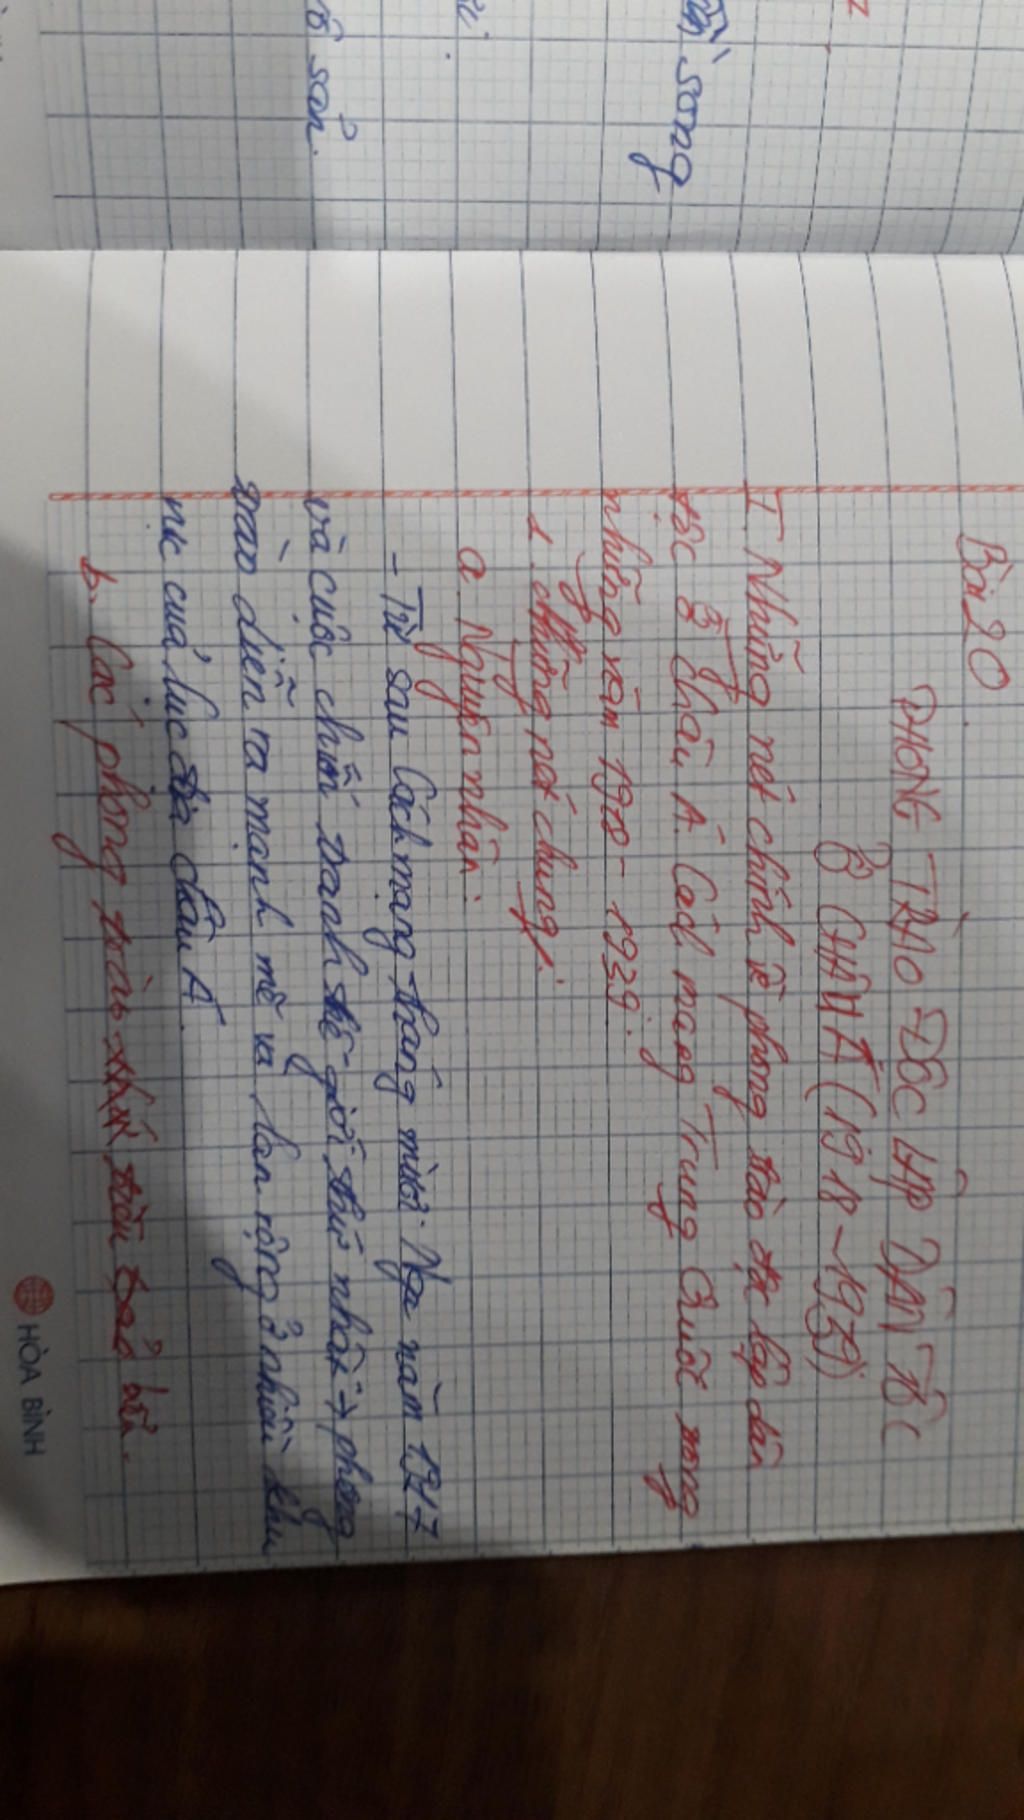 ô sản.
song
Bài 20
PHONG TRÀO ĐỘC LẬP DÂN TỘC
Ở CHÂU Á (1918-1939)
I. Những nét chính về phong trào độc lập dân
tộc ở châu Á. Cách mạng Trung Quốc trong
những năm 1918-1939.
1. Những nét chung:
a. Nguyên nhân:
- Từ sau Cách mạng tháng mười Nga năm 1917
và cuộc chiến tranh thế giới thứ nhất → phong
trào diễn ra mạnh mẽ và lan rộng ở nhiều khu
vực của lục địa châu Á.
b. Các phong trào tiêu biểu.
HÒA BÌNH